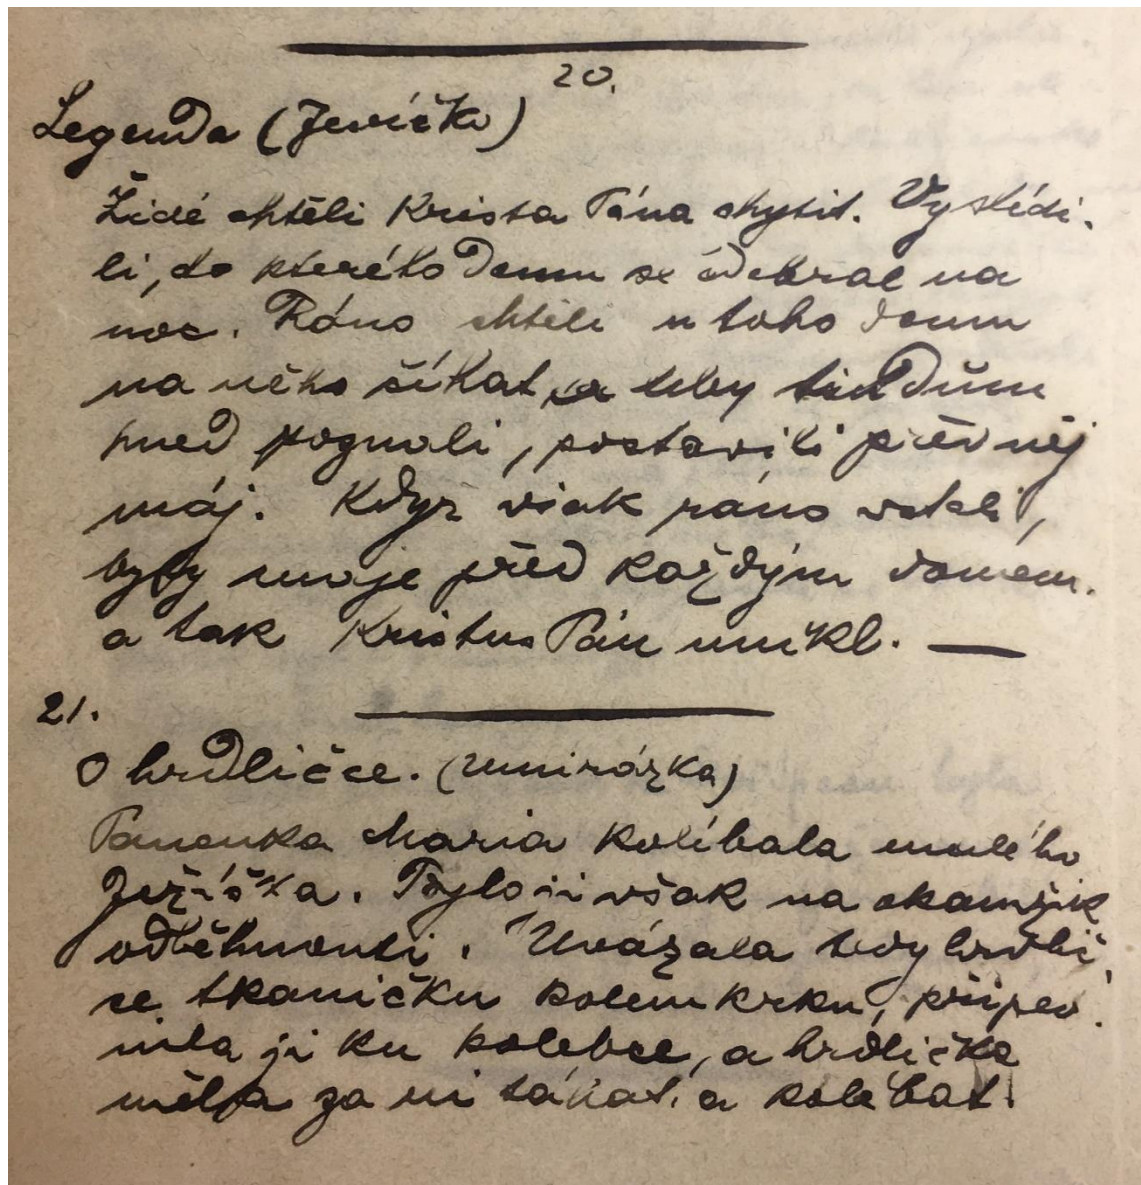 20.
Legenda (Jevíčko)
Židé chtěli Krista Pána chytit. Vyslídi-
li, do kterého domu se odebral na
noc. Ráno chtěli u toho domu
na něho číhat, a aby ten dům
hned poznali, postavili před něj
máj. Když však ráno vstali,
byly máje před každým domem.
a tak Kristus Pán unikl. —
21.
O hrdličce. (Unirázka)
Panenka Maria kolíbala malého
Ježíška. Bylo jí však na okamžik
odběhnouti. Uvázala tedy hrdlič-
ce tkaničku kolem krku, připev-
nila ji ku kolébce, a hrdlička
měla za ni táhat a kolébat.